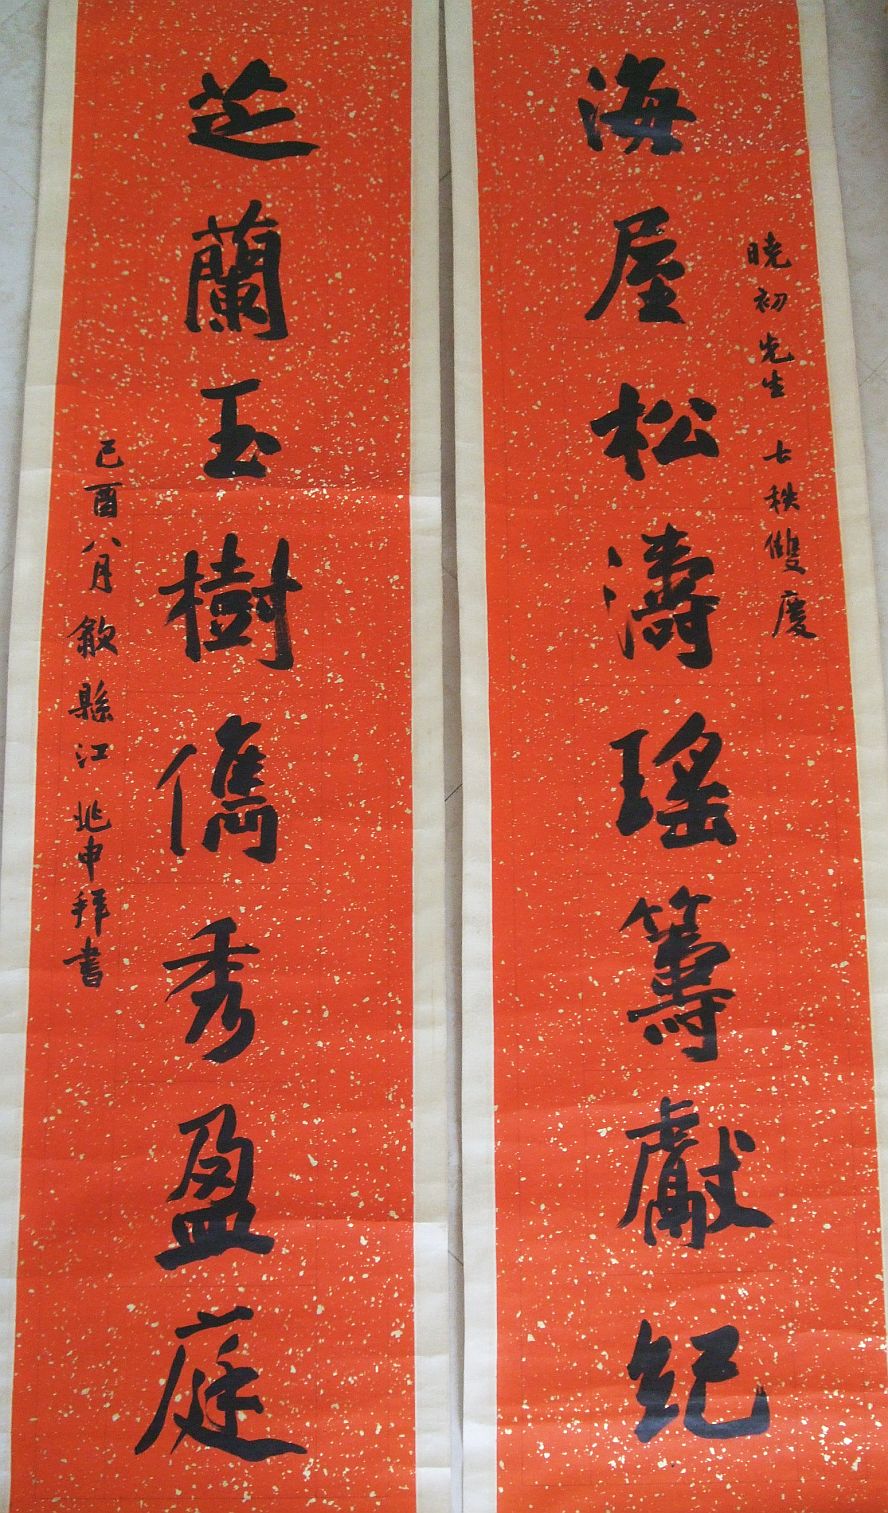 海屋松濤瑤籌獻紀
曉初先生 七秩雙慶
芝蘭玉樹儁秀盈庭
己酉八月歙縣江兆申拜書